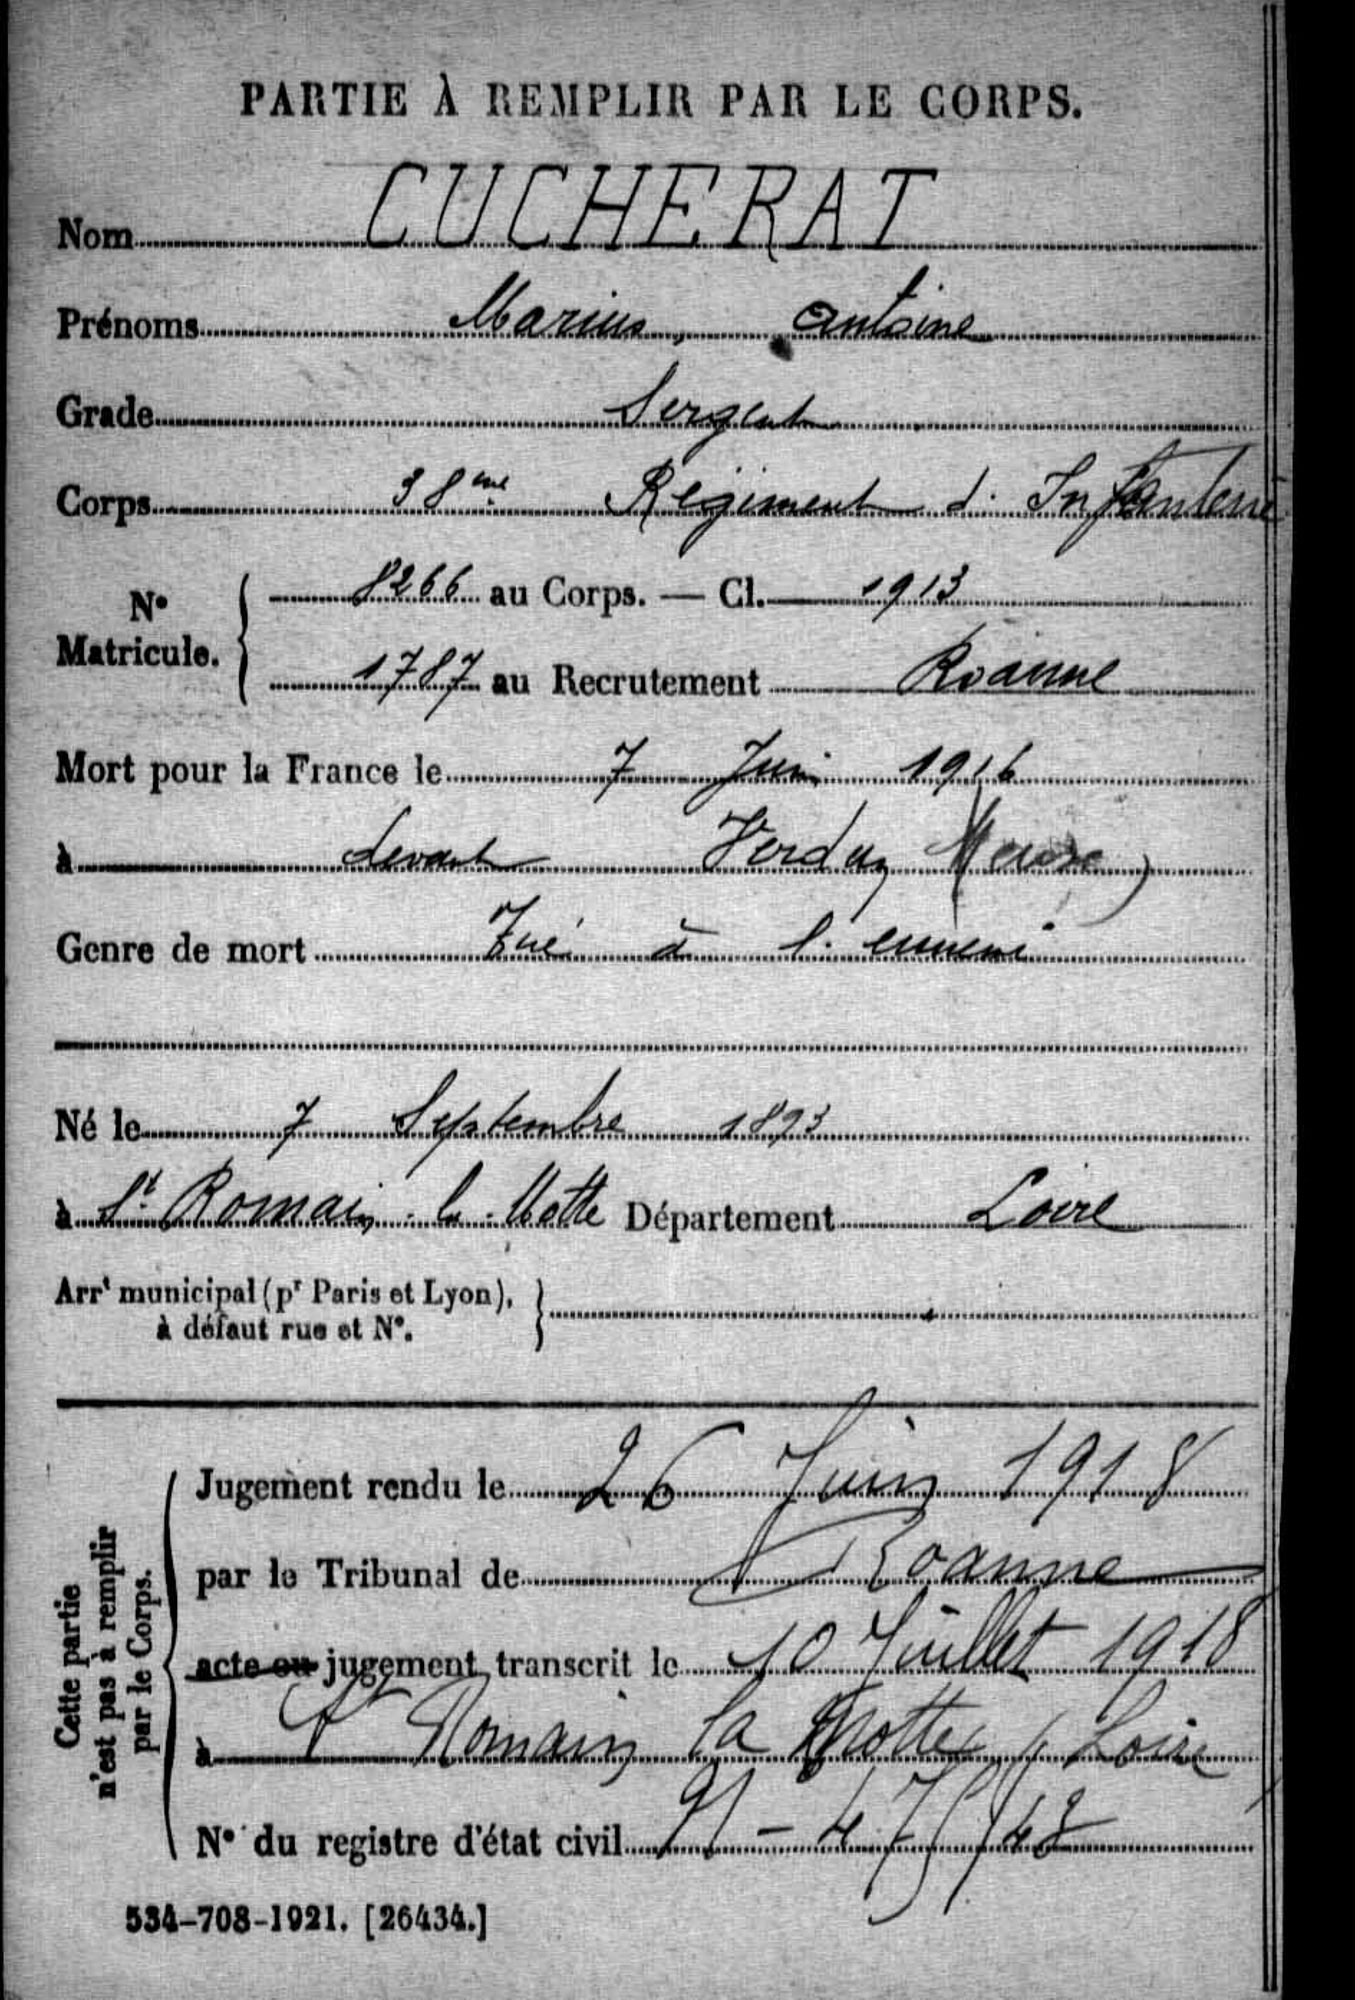 PARTIE À REMPLIR PAR LE CORPS.
Nom CUCHERAT
Prénoms Marius, Antoine
Grade Sergent
Corps 38me Régiment d. Infanterie
No Matricule. 8266 au Corps. — Cl. 1913
1787 au Recrutement Roanne
Mort pour la France le 7 Juin 1916
à devant Verdun (Meuse)
Genre de mort Tué à l. ennemi
Né le 7 Septembre 1893
à St. Romain. la. Motte Département Loire
Arrt municipal (pr Paris et Lyon), à défaut rue et No.
Cette partie n'est pas à remplir par le Corps.
Jugement rendu le 26 Juin 1918
par le Tribunal de Roanne
acte ou jugement transcrit le 10 Juillet 1918
à St Romain la Motte (Loire)
No du registre d'état civil
534-708-1921. [26434.]